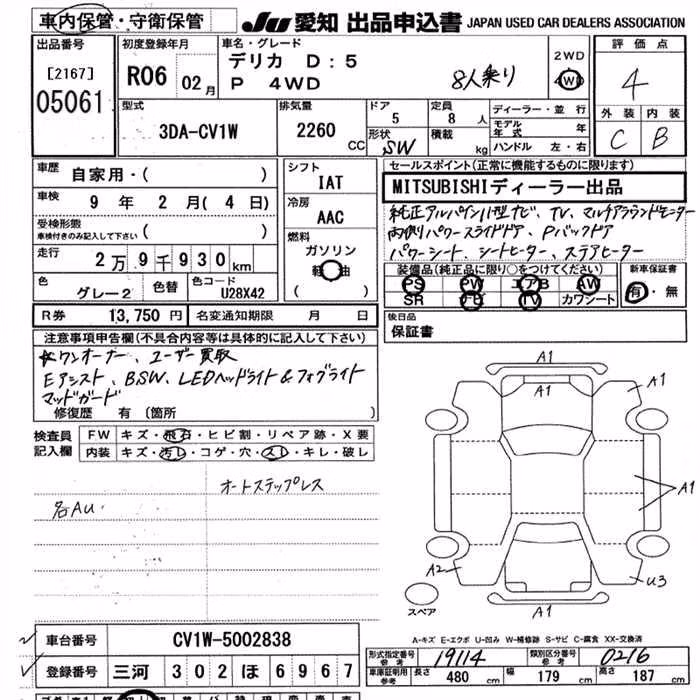 車内保管・守衛保管
JU 愛知 出品申込書 JAPAN USED CAR DEALERS ASSOCIATION
出品番号
[2167]
05061
初度登録年月
R06 02月
車名・グレード
デリカ D:5
P 4WD
8人乗り
2WD
4WD
評価点
4
外装 内装
C B
型式
3DA-CV1W
排気量
2260 CC
ドア
5
形状
SW
定員
8 人
積載
kg
ディーラー・並行
モデル年式 年
ハンドル 左・右
車歴
自家用・( )
車検
9 年 2 月( 4 日)
受検形態
車検付きのみ記入して下さい ( )
走行
2万9千930km
色
グレー2
色替
色コード
U28X42
シフト
IAT
冷房
AAC
燃料
ガソリン
軽油
( )
セールスポイント(正常に機能するものに限ります)
MITSUBISHIディーラー出品
純正アルパイン11型ナビ、TV、マルチアラウンドモニター
両側パワースライドドア、Pバックドア
パワーシート、シートヒーター、ステアヒーター
装備品(純正品に限り○をつけてください)
PS PW エアB AW
SR ナビ TV カワシート
新車保証書
有・無
R券 13,750 円 名変通知期限 月 日
後日品
保証書
注意事項申告欄(不具合内容等は具体的に記入して下さい)
ワンオーナー、ユーザー買取
Eアシスト、BSW、LEDヘッドライト&フォグライト
マッドガード
修復歴 有(箇所 )
検査員記入欄
FW キズ・飛石・ヒビ割・リペア跡・X要
内装 キズ・汚レ・コゲ・穴・スレ・キレ・破レ
オートステップレス
各AU
A1
A1
A1
A1
A2
U3
A1
スペア
A-キズ E-エクボ U-凹み W-補修跡 S-サビ C-腐食 XX-交換済
車台番号 CV1W-5002838
登録番号 三河 302 ほ 6967
形式指定番号 参考 19114
類別区分番号 参考 0216
車庫証明用参考 長さ 480 cm 幅 179 cm 高さ 187 cm